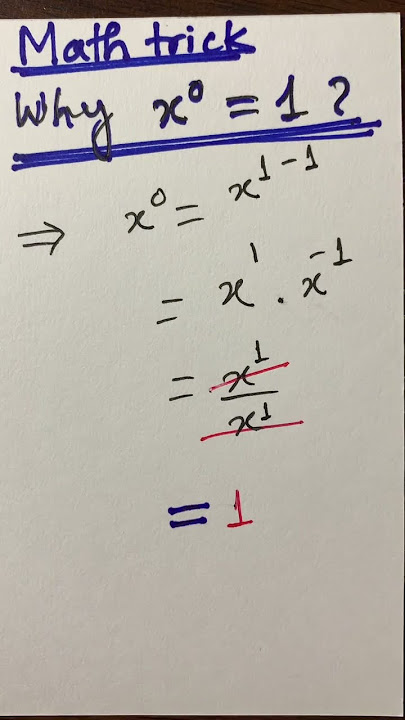 Math trick
Why x⁰ = 1 ?
⇒ x⁰ = x¹⁻¹
= x¹ . x⁻¹
= x¹/x¹
= 1